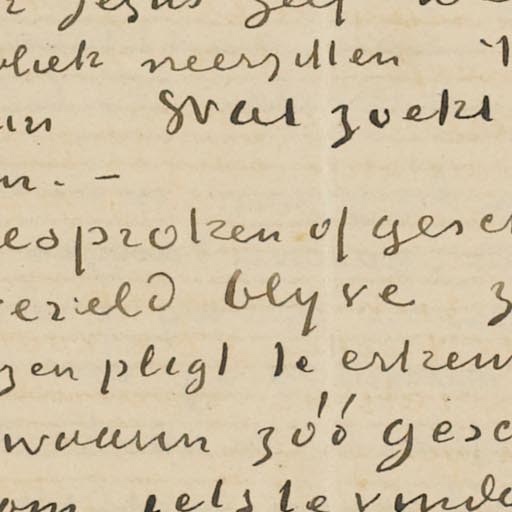 Jezus zelf
neerzitten 't
Wat zoekt
n. –
esproken of gesch
ereld blyve z
zen pligt te erken
waarin zóó gesc
om iets te vinde